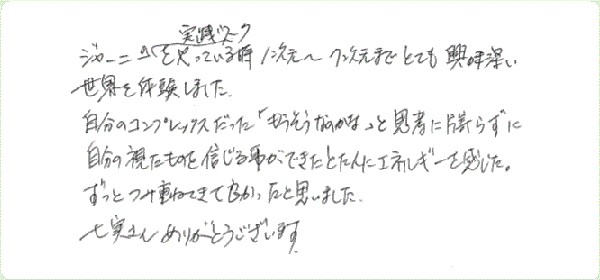 実践ワーク
ジャーニーでをやっている時 1次元〜7次元までとても興味深い
世界を体験しました。
自分のコンプレックスだった「もうそうなのかな」と思考に偏らずに
自分の視たものを信じる事ができたとたんにエネルギーを感じた。
ずっとつみ重ねてきて良かったと思いました。
七実さんありがとうございます